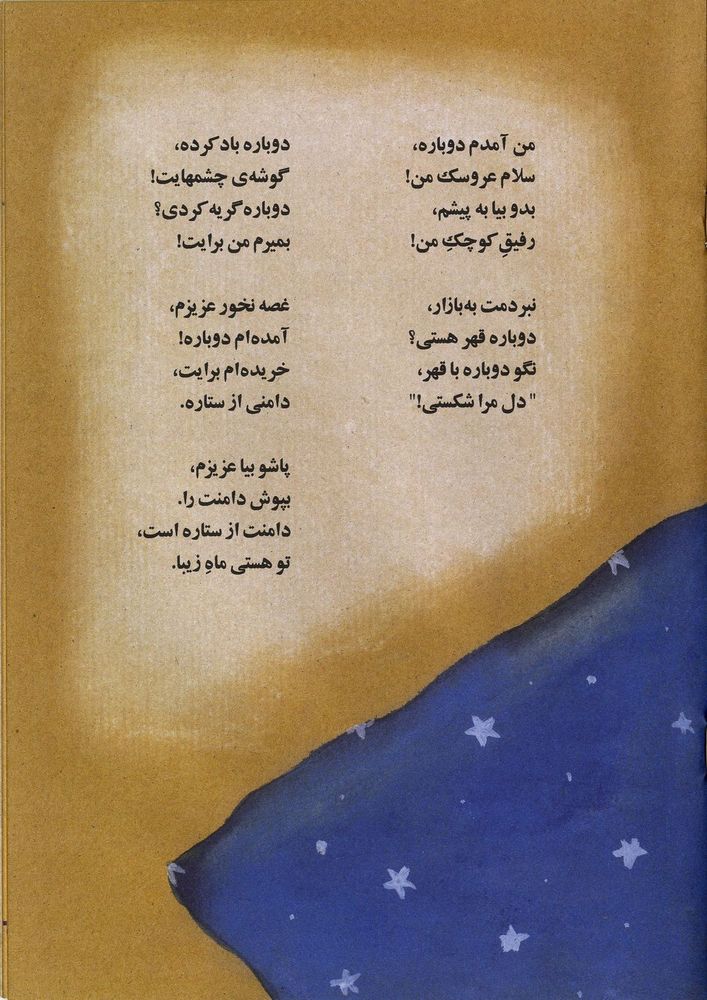 من آمدم دوباره،
سلام عروسک من!
بدو بیا به پیشم،
رفیقِ کوچکِ من!
نبردمت به‌بازار،
دوباره قهر هستی؟
نگو دوباره با قهر،
"دل مرا شکستی!"
دوباره باد کرده،
گوشه‌ی چشمهایت!
دوباره گریه کردی؟
بمیرم من برایت!
غصه نخور عزیزم،
آمده‌ام دوباره!
خریده‌ام برایت،
دامنی از ستاره.
پاشو بیا عزیزم،
بپوش دامنت را.
دامنت از ستاره است،
تو هستی ماهِ زیبا.